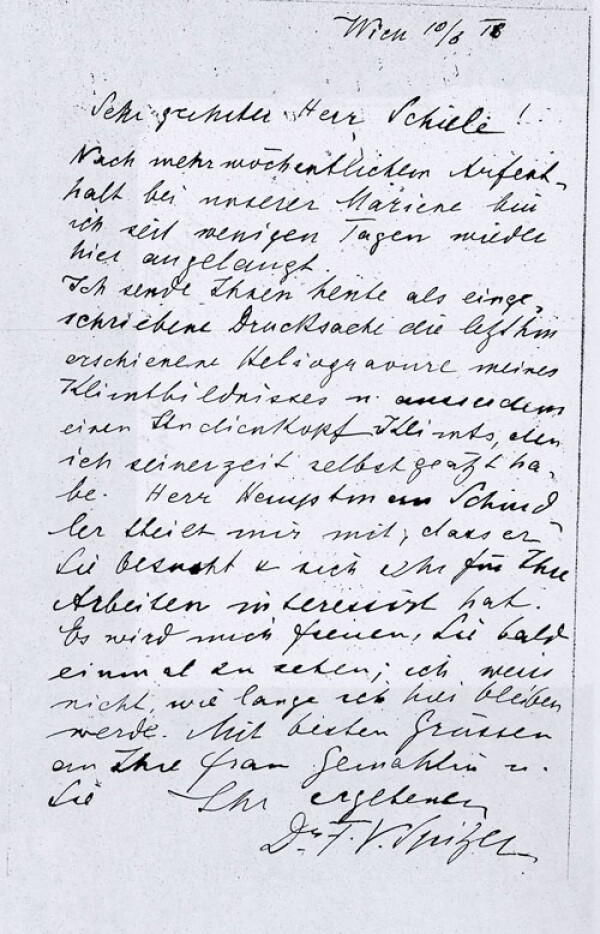 Wien 10/6 18
Sehr geehrter Herr Schiele!
Nach mehrwöchentlichem Aufent-
halt bei unserer Marine bin
ich seit wenigen Tagen wieder
hier angelangt
Ich sende Ihnen heute als einge-
schriebene Drucksache die letzthin
erschienene Heliogravure meines
Klimtbildnisses u. ausserdem
einen Studienkopf Klimts, den
ich seinerzeit selbst geätzt ha-
be. Herr Hauptmann Schind
ler theilt mir mit, dass er
Sie besucht & sich sehr für Ihre
Arbeiten interessirt hat.
Es wird mich freuen, Sie bald
einmal zu sehen; ich weiss
nicht, wie lange ich hier bleiben
werde. Mit besten Grüssen
an Ihre Frau Gemahlin u.
Sie Ihr ergebener
Dr. F. V. Spitzer